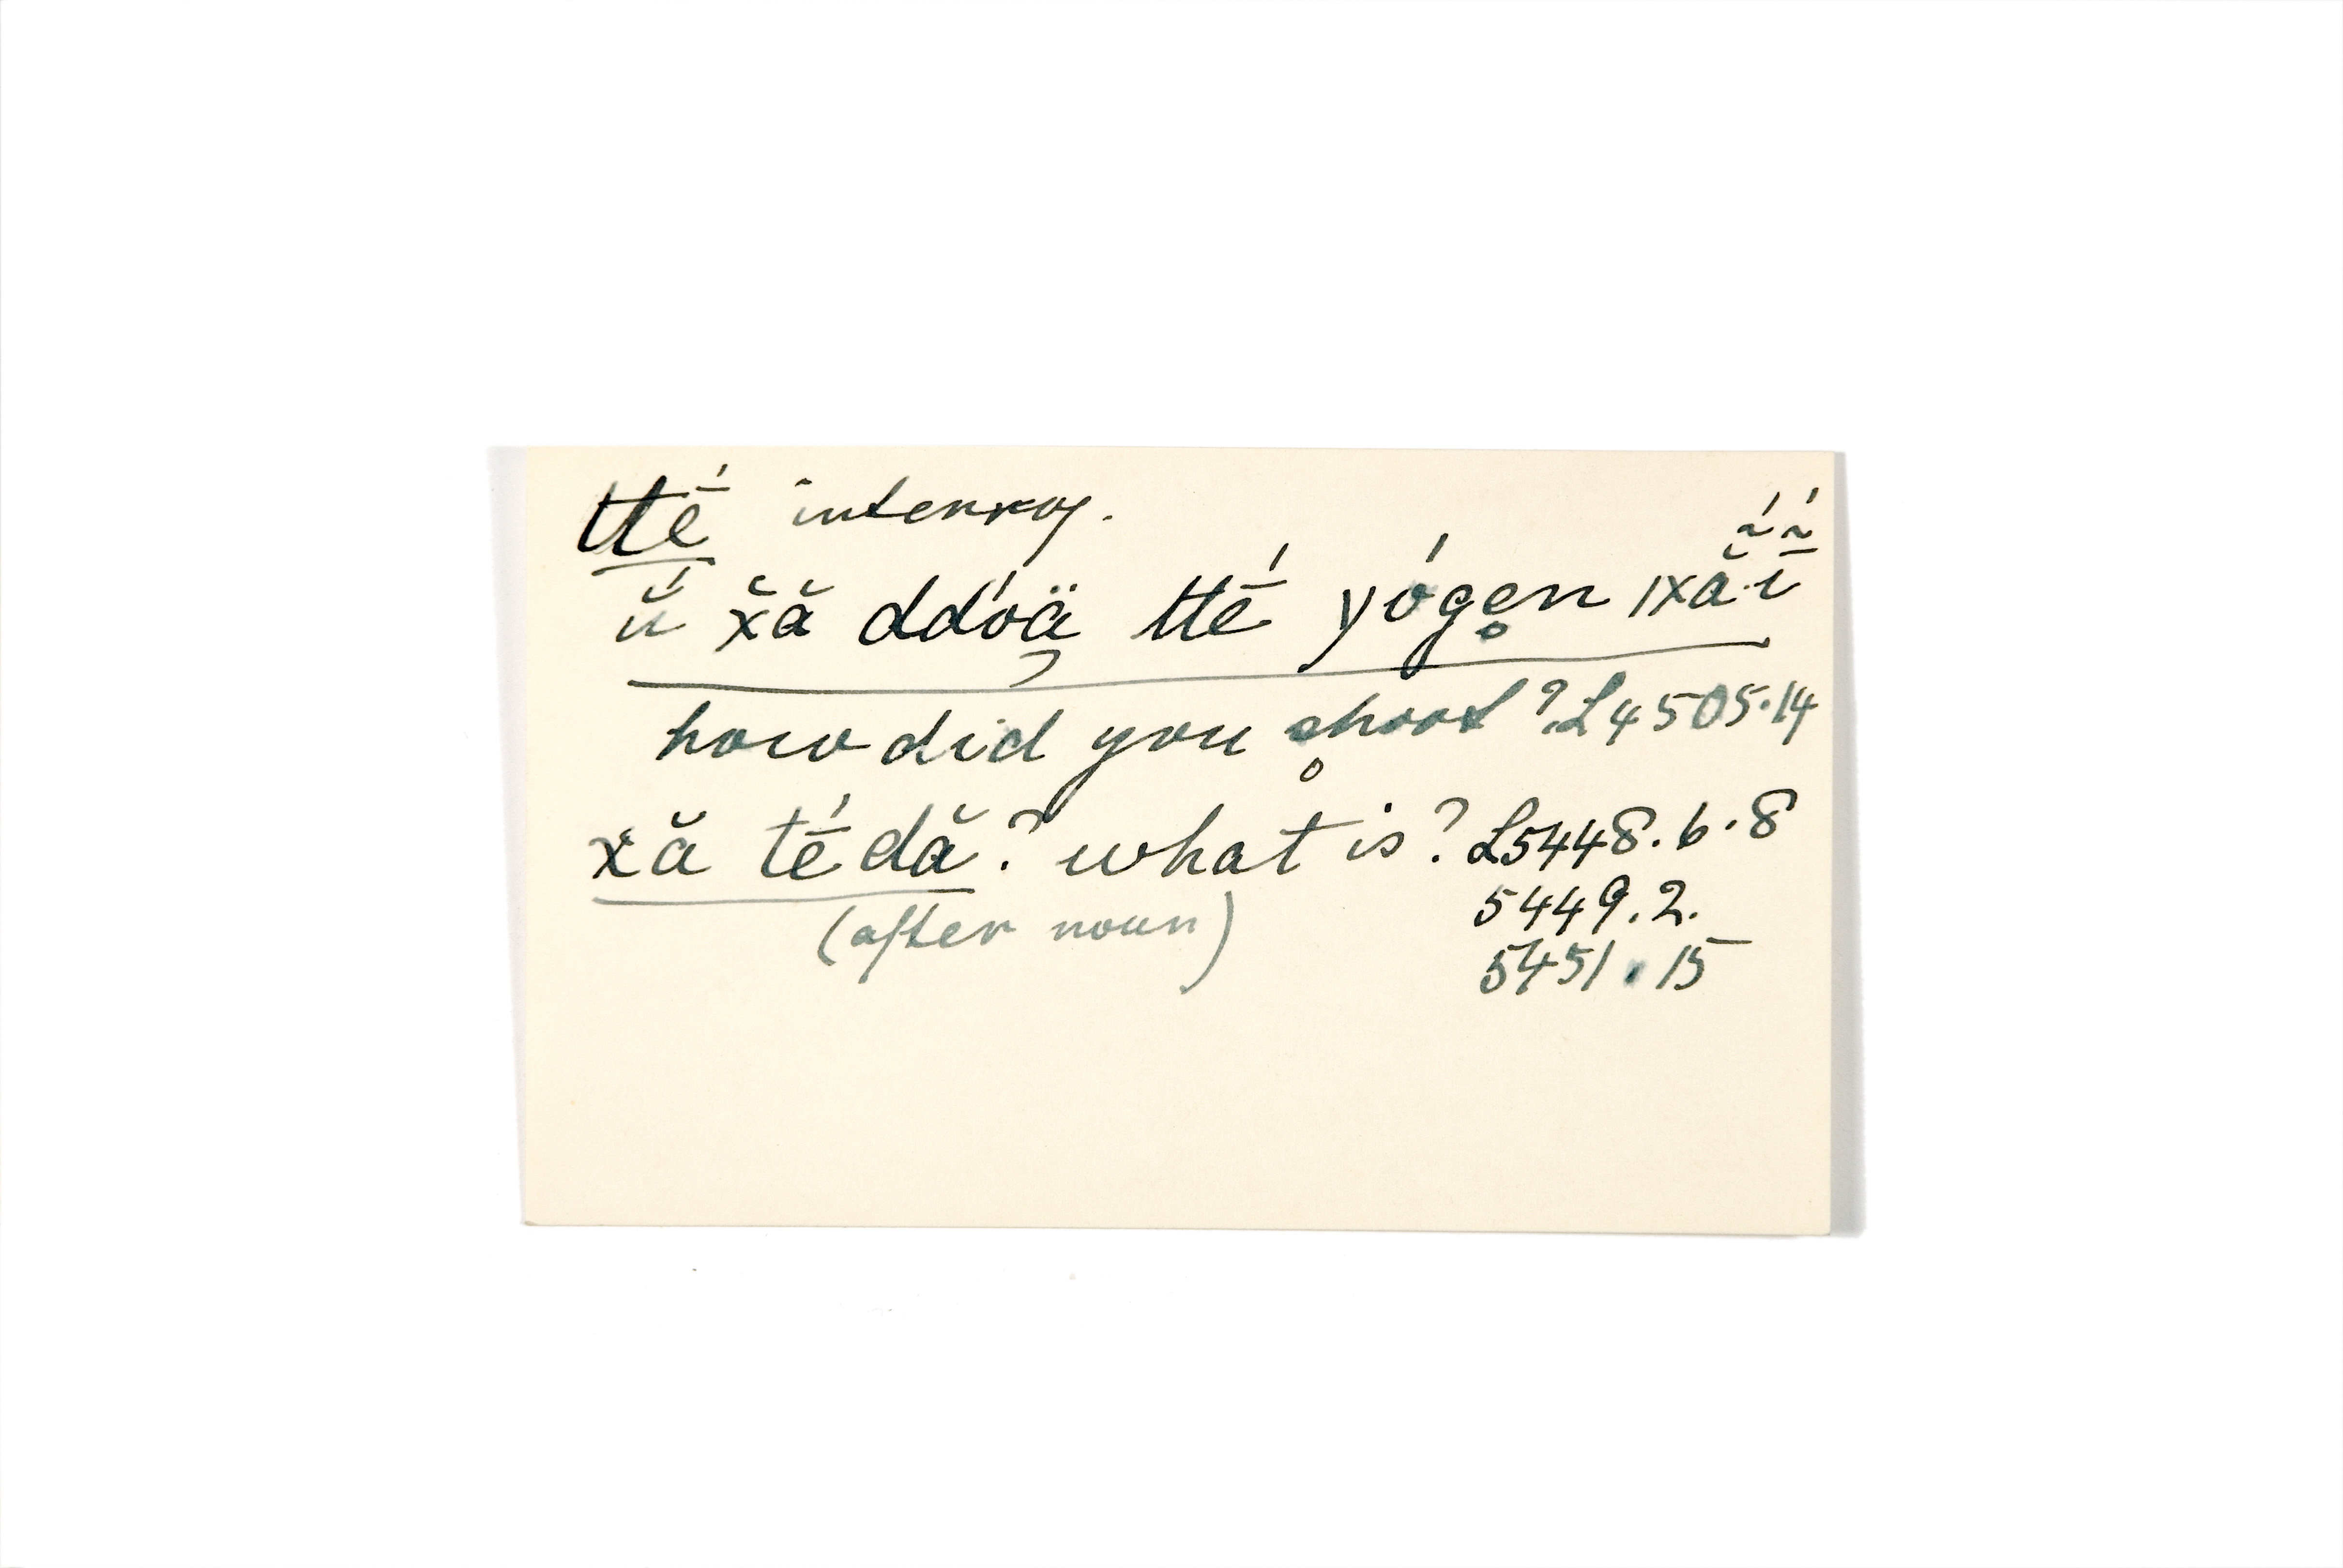 ttḗ interrog.
ŭ́ x̆ă ddóä ttḗ yógen̥ ıxẵ́·ī̃́
how did you shoot? L4505.14
xă tḗdă? what is? L5448.6.8
(after noun) 5449.2.
5451.15